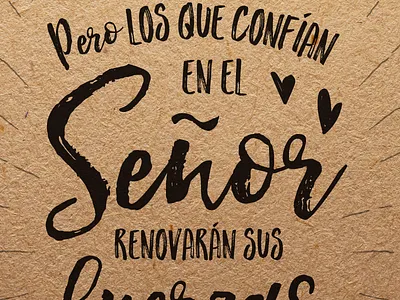 Pero LOS QUE CONFÍAN
EN EL
Señor
RENOVARÁN SUS
fuerzas